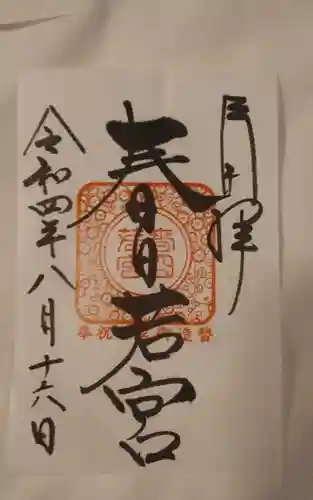 奉拝
春日若宮
令和四年八月十六日